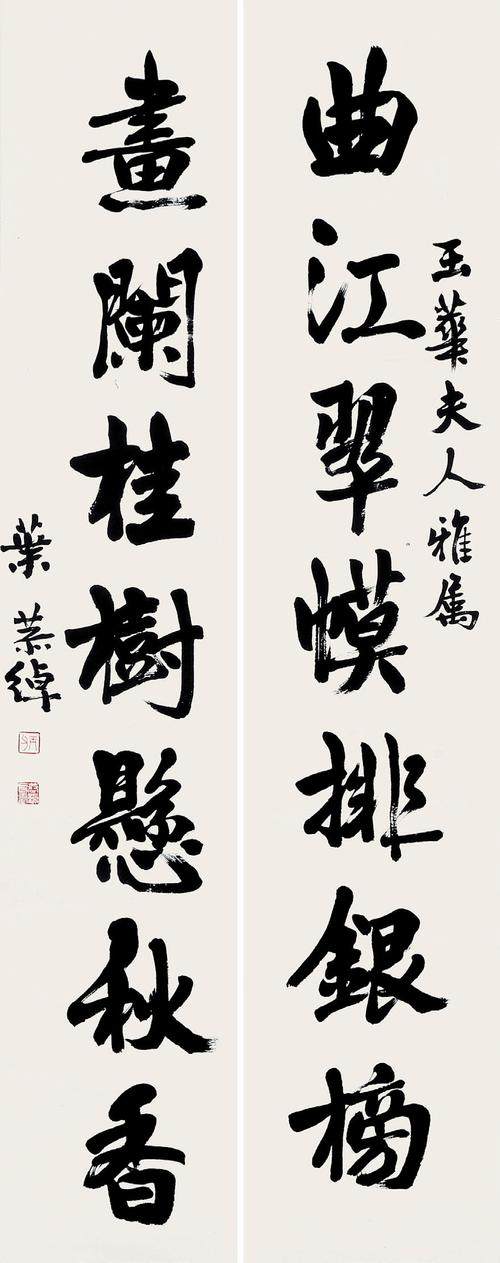 玉華夫人雅属
曲江翠幙排銀榜
畫闌桂樹懸秋香
葉恭綽